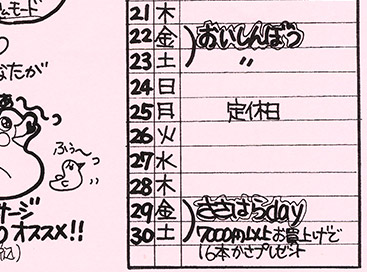 モード
なたが
ふぅ〜ん
サージ
オススメ!!
21 木
22 金 おいしんぼう
23 土 〃
24 日
25 月 定休日
26 火
27 水
28 木
29 金 ささはらday
30 土 7000円以上お買上げで
16本かさプレゼント